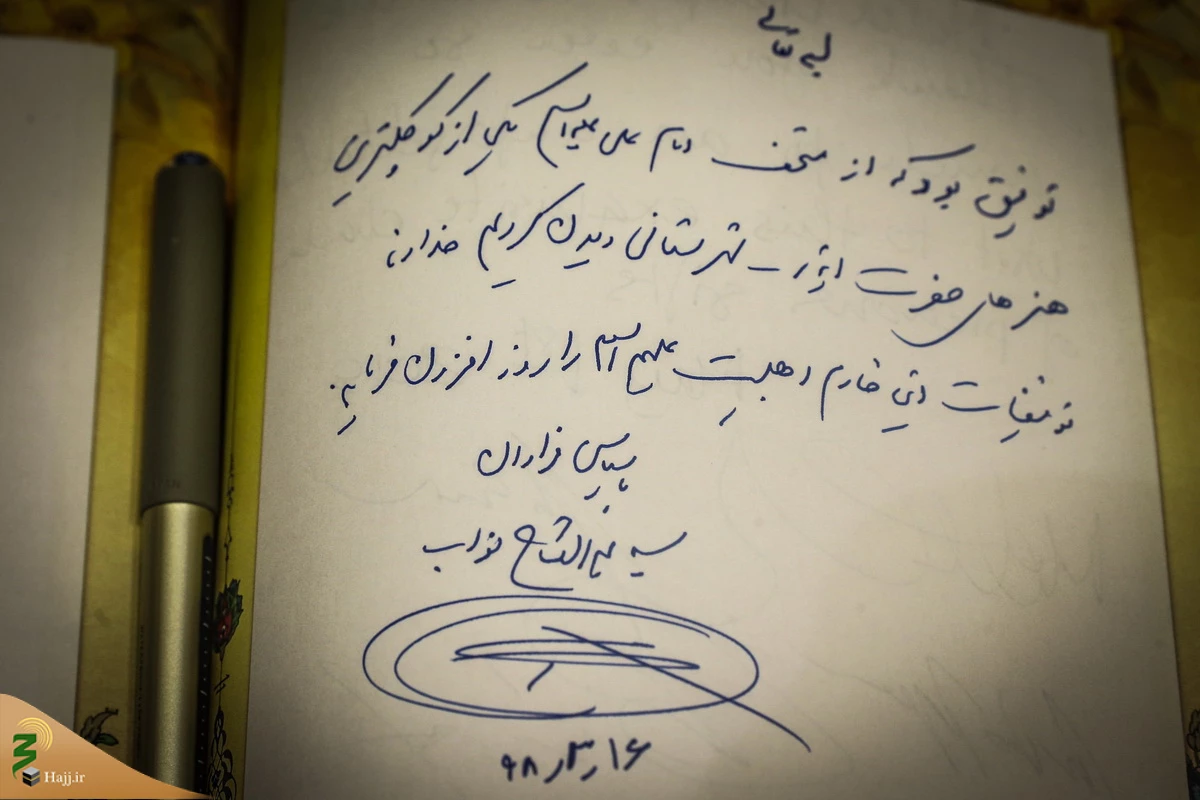 بسمه تعالی
توفیق بود که از متحف امام علی علیه السلام یکی از کوچکترین
هنرهای حضرت شهرستانی دیدن کردیم خداوند
توفیقات این خادم اهلبیت علیهم السلام را روز افزون فرماید.
با سپاس فراوان
سید عبدالفتاح نواب
۱۶ر۳ر۹۸
Hajj.ir